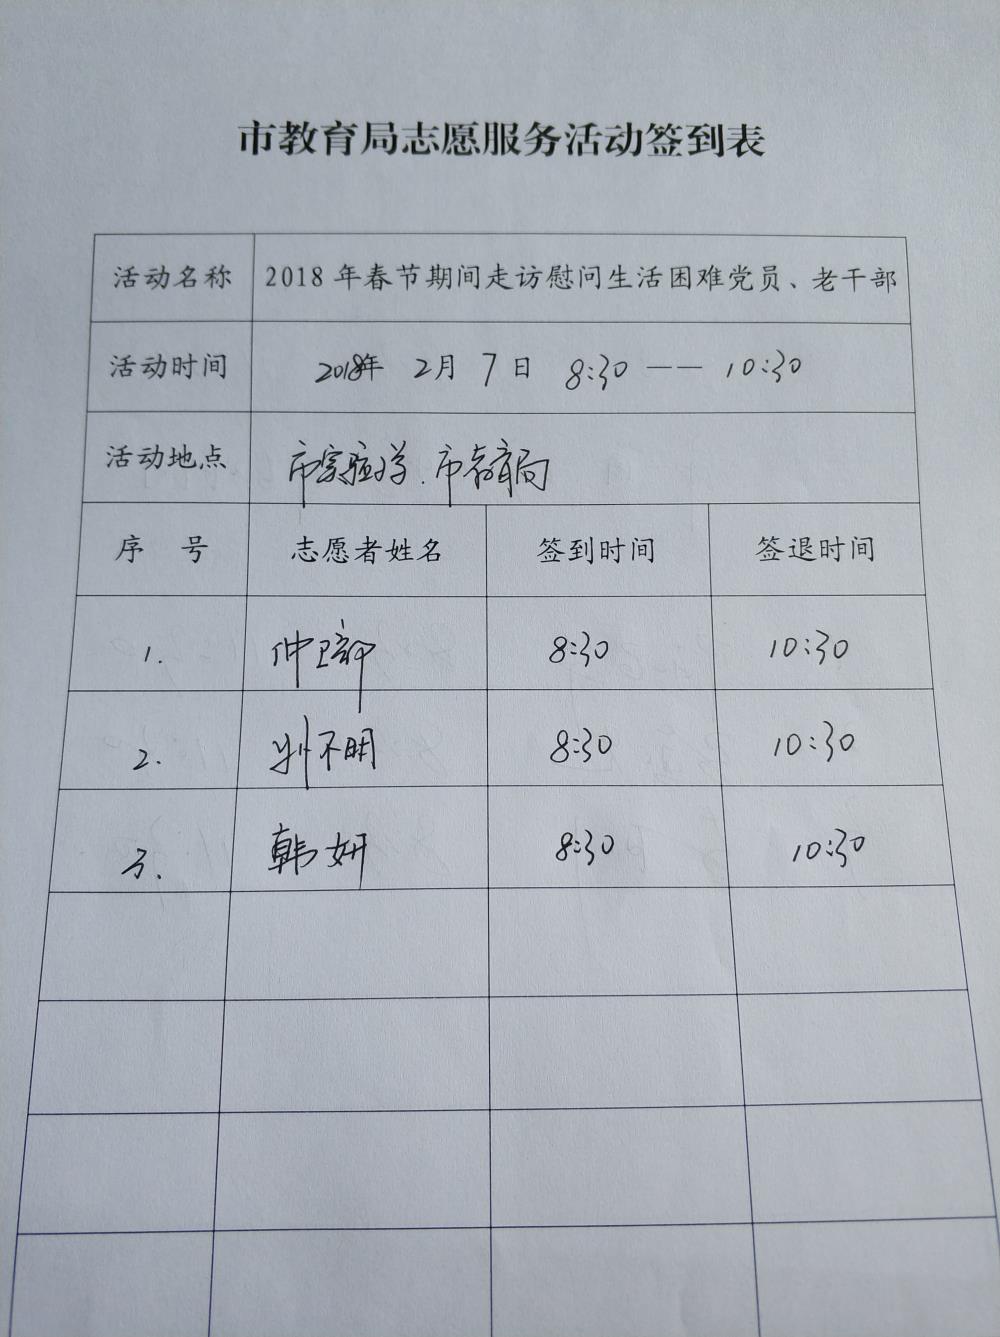 市教育局志愿服务活动签到表
活动名称 2018年春节期间走访慰问生活困难党员、老干部
活动时间 2018年 2月 7日 8:30 —— 10:30
活动地点 市实验小学.市教育局
序 号 志愿者姓名 签到时间 签退时间
1. 仲 8:30 10:30
2. 8:30 10:30
3. 韩妍 8:30 10:30